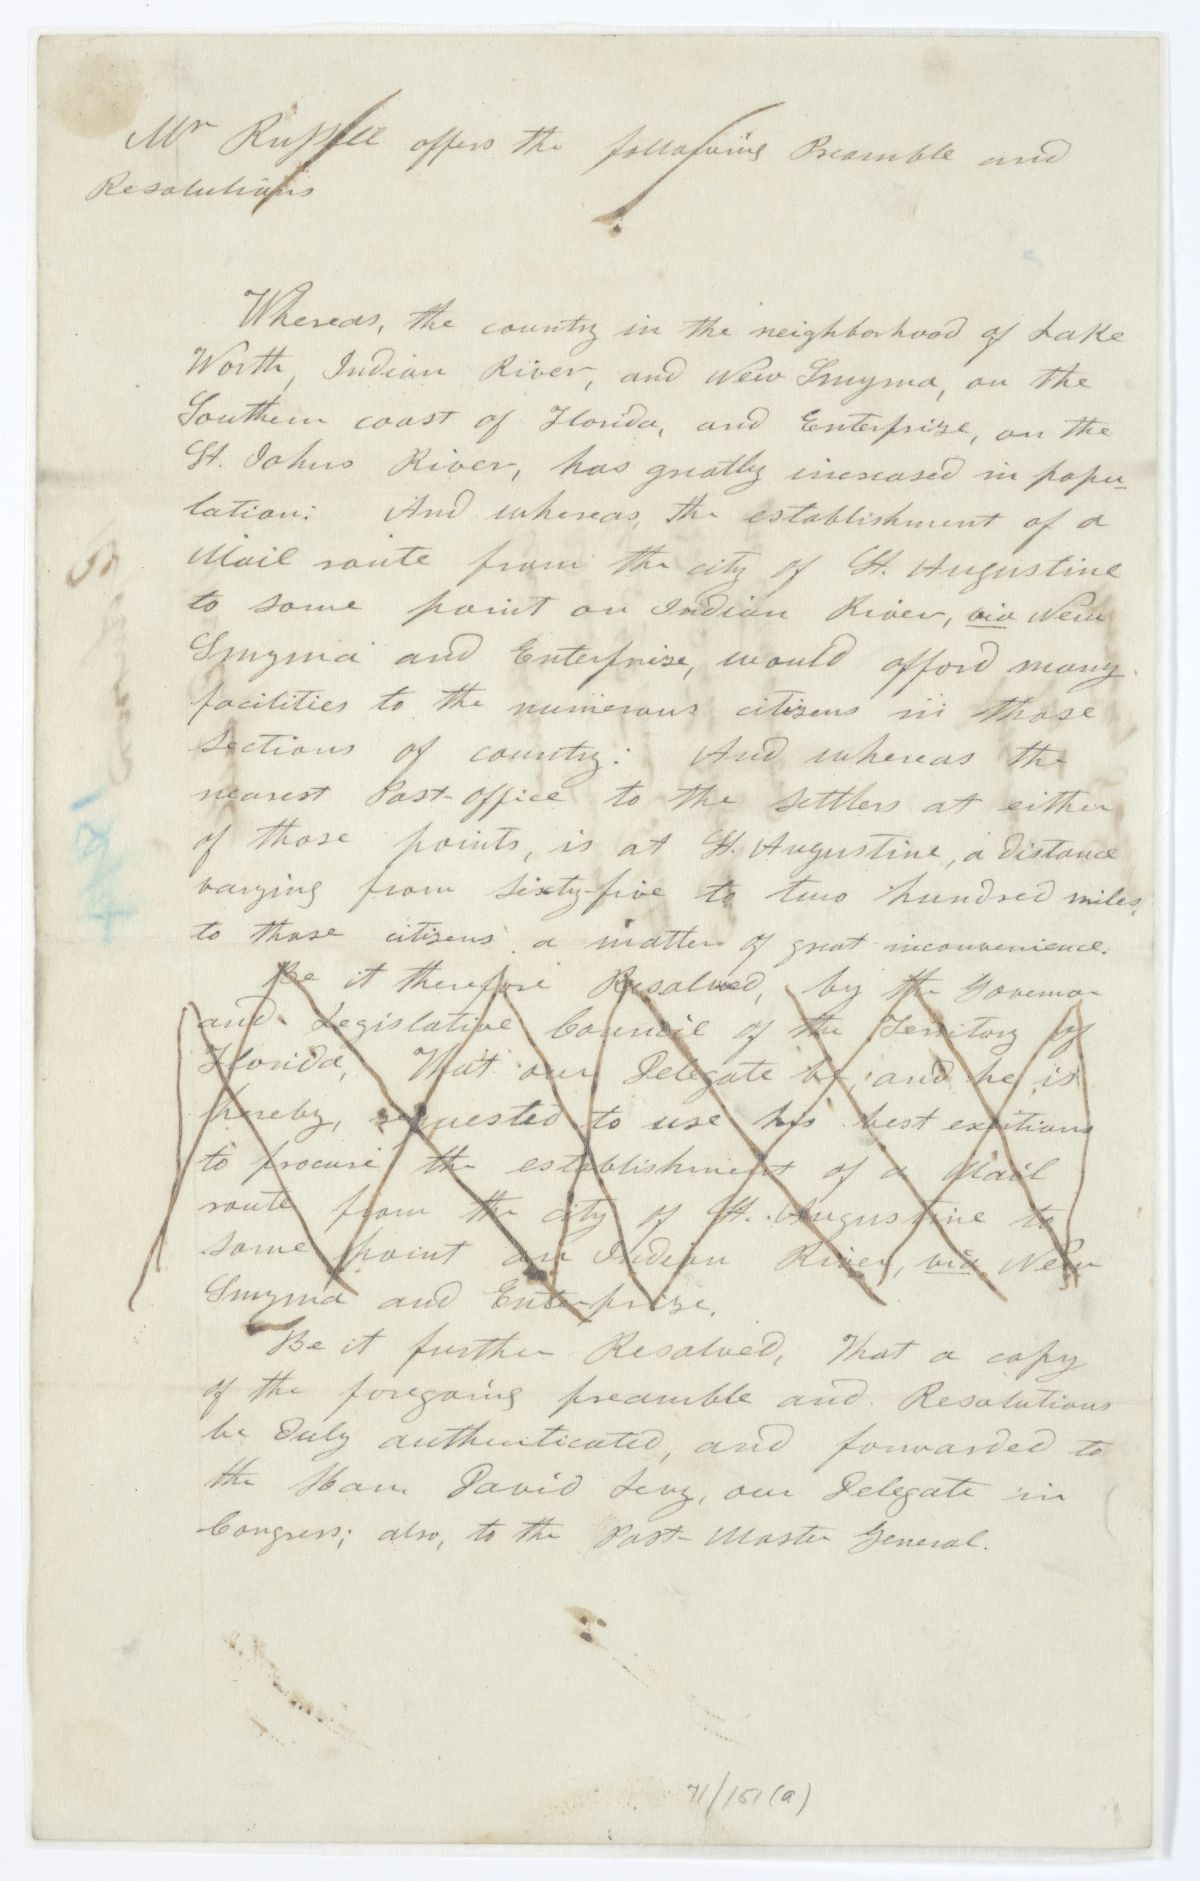 Mr Russell offers the following Preamble and
Resolutions
Whereas, the country in the neighborhood of Lake
Worth, Indian River, and New Smyrna, on the
Southern coast of Florida, and Enterprise, on the
St. Johns River, has greatly increased in popu-
lation: And whereas, the establishment of a
Mail route from the city of St. Augustine
to some point on Indian River, via New
Smyrna and Enterprise, would afford many
facilities to the numerous citizens in those
sections of country: And whereas the
nearest Post-office to the settlers at either
of those points, is at St. Augustine, a distance
varying from sixty-five to two hundred miles,
to those citizens a matter of great inconvenience.
Be it therefore Resolved, by the Governor
and Legislative Council of the Territory of
Florida, That our Delegate be, and he is
hereby, requested to use his best exertions
to procure the establishment of a Mail
route from the city of St. Augustine to
some point on Indian River, via New
Smyrna and Enterprise.
Be it further Resolved, That a copy
of the foregoing preamble and Resolutions
be duly authenticated, and forwarded to
the Hon. David Levy, our Delegate in
Congress; also, to the Post-Master General.
71/151(a)